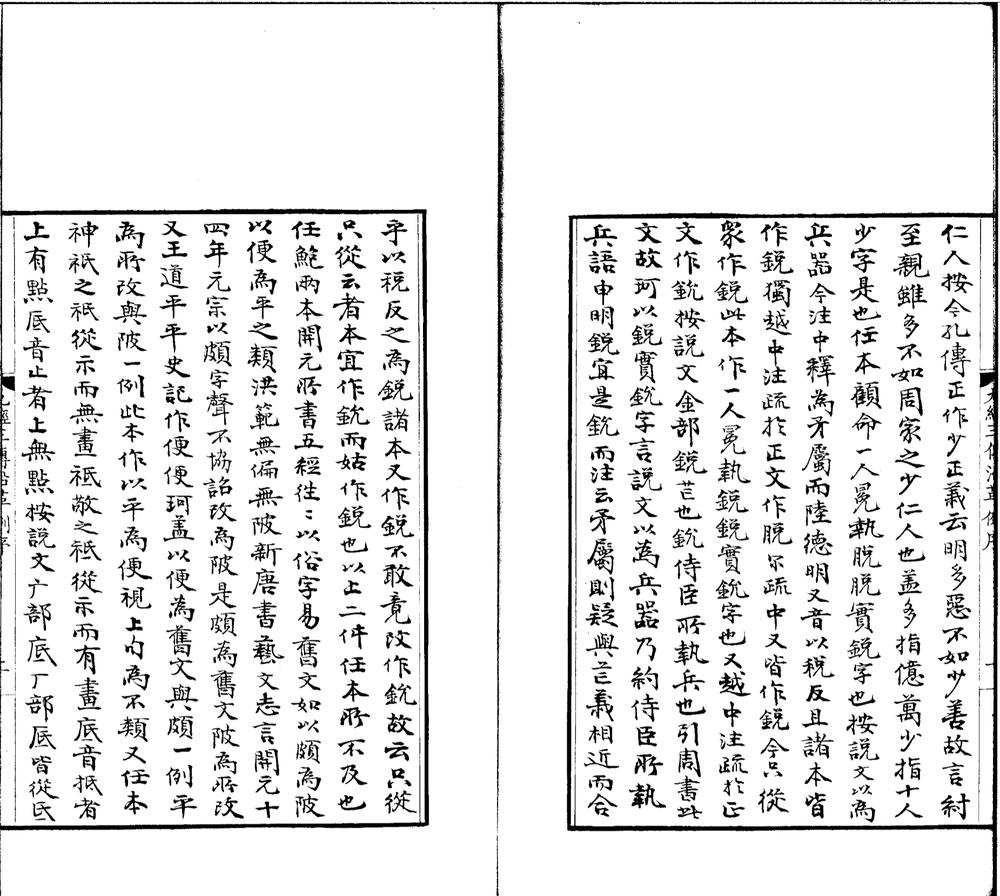 仁人按今孔傳正作少正義云明多惡不如少善故言紂
至親雖多不如周家之少仁人也盖多指億萬少指十人
少字是也任本顧命一人冕執脱脱實鋭字也按説文以為
兵器今注中釋為矛屬而陸德明又音以税反且諸本皆
作鋭獨越中注疏於正文作脱尔疏中又皆作鋭今只從
衆作鋭此本作一人冕執鋭鋭實鈗字也又越中注疏於正
文作鈗按説文金部鋭芒也鈗侍臣所執兵也引周書此
文故珂以鋭實鈗字言説文以為兵器乃約侍臣所執
兵語申明鋭宜是鈗而注云矛屬則疑與芒義相近而合
乎以税反之為鋭諸本又作鋭不敢竟改作鈗故云只從
只從云者本宜作鈗而姑作鋭也以上二件任本所不及也
任鮑兩本開元所書五經往〻以俗字易舊文如以頗為陂
以便為平之類洪範無偏無陂新唐書藝文志言開元十
四年元宗以頗字聲不協詔改為陂是頗為舊文陂為所改
又王道平平史記作便便珂盖以便為舊文與頗一例平
為所改與陂一例此本作以平為便視上句為不類又任本
神祇之祇從示而無畫祗敬之祗從示而有畫底音抵者
上有點厎音止者上無點按説文广部底厂部厎皆從氐
九經三傳沿革例序